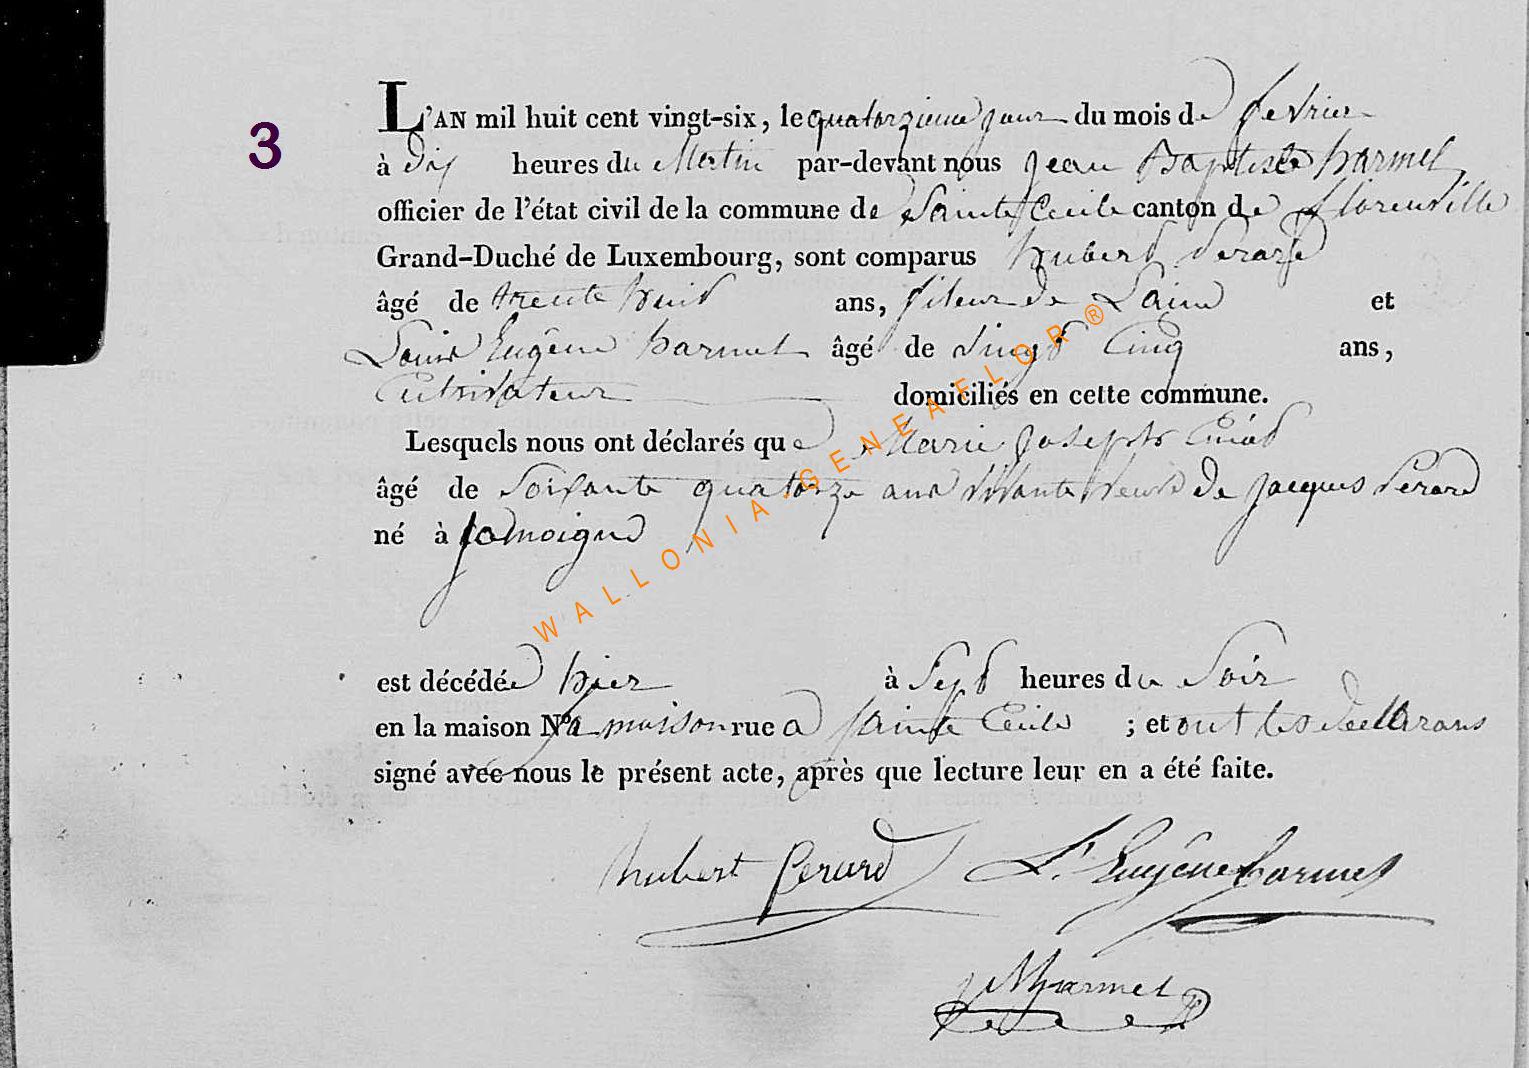 3
L'AN mil huit cent vingt-six, le quatorzieme jour du mois de fevrier
à dix heures du Matin par-devant nous Jean Baptiste harmel
officier de l'état civil de la commune de Sainte Cecile canton de florenville
Grand-Duché de Luxembourg, sont comparus hubert Perard
âgé de trente huit ans, fileur de Laine et
Louis Eugêne harmel âgé de vingt Cinq ans,
Cultivateur domiciliés en cette commune.
Lesquels nous ont déclarés que Marie Joseph
âgé de Soixante quatorze ans vivante veuve de Jacques Perard
né à Jamoigne
est décédée hier à Sept heures du Soir
en la maison N° maison rue a Sainte Cecile ; et ont les declarans
signé avec nous le présent acte, après que lecture leur en a été faite.
hubert Perard L. Eugêne harmel
harmel
WALLONIA-GENEAFLOR®